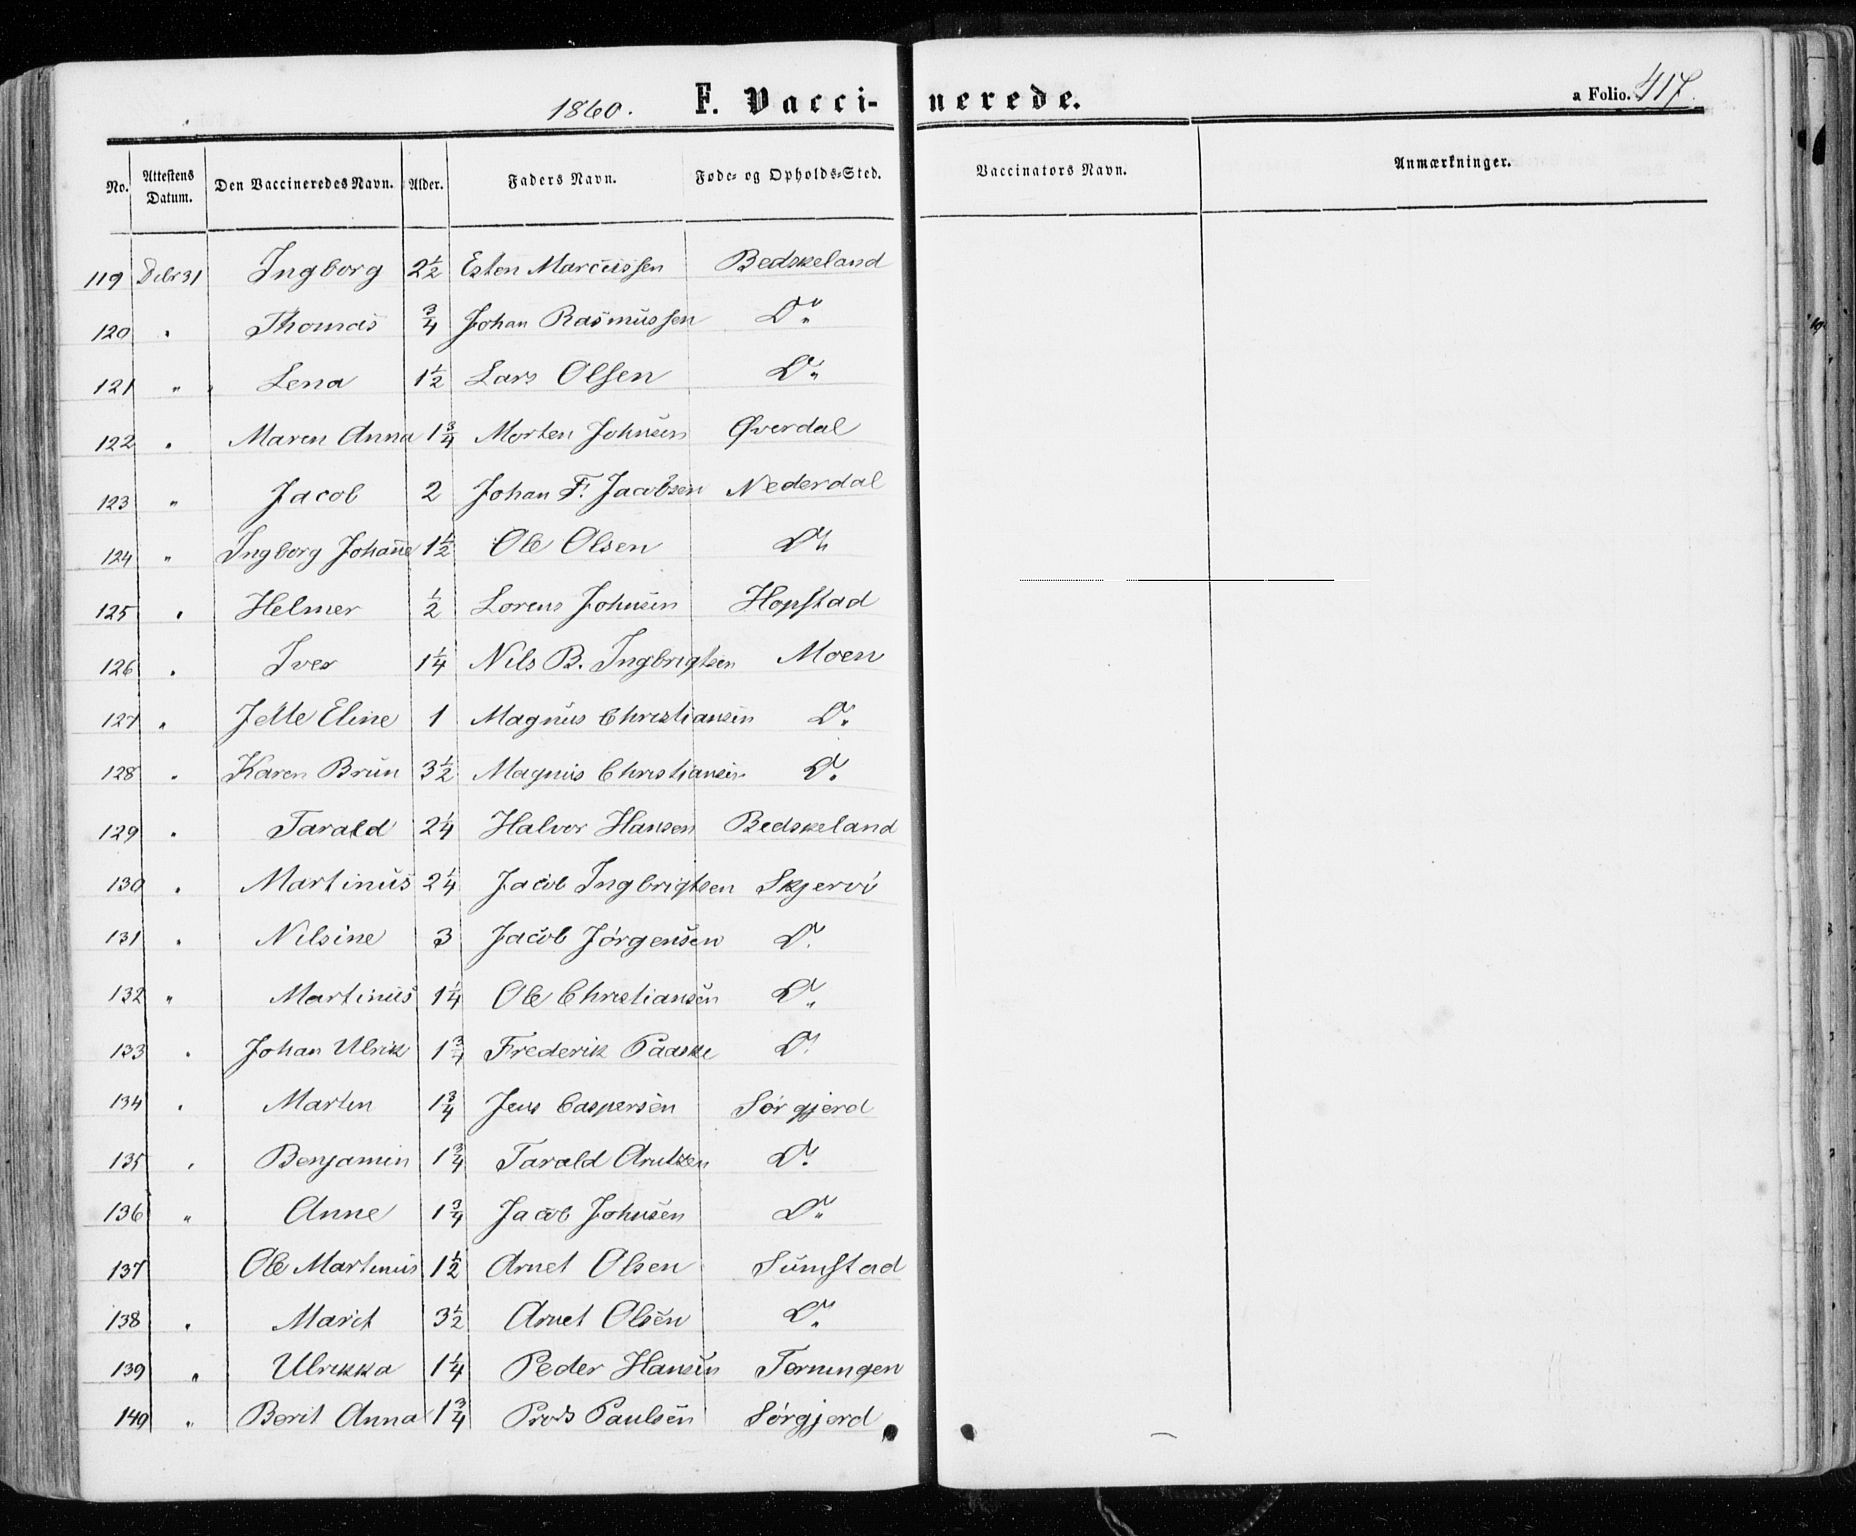 1860. F. Vacci- nerede. a Folio. 417.
No. Attestens Datum. Den Vaccineredes Navn. Alder. Faders Navn. Føde- og Opholds-Sted. Vaccinators Navn. Anmærkninger.
119 Decbr 31 Ingborg 2½ Esten Marcussen Bedskeland
120 " Thomas ¾ Johan Rasmussen Do
121 " Lena 1½ Lars Olsen Do
122 " Maren Anna 1¾ Morten Johnsen Øverdal
123 " Jacob 2 Johan F. Jacobsen Nederdal
124 " Ingborg Johanne 1½ Ole Olsen Do
125 " Helmer ½ Lorens Johnsen Hopstad
126 " Iver 1¼ Nils B. Ingbrigtsen Moen
127 " Jette Eline 1 Magnus Christiansen Do
128 " Karen Brun 3½ Magnus Christiansen Do
129 " Tarald 2¼ Halvor Hansen Bedskeland
130 " Martinus 2¼ Jacob Ingbrigtsen Skjervö
131 " Nilsine 3 Jacob Jörgensen Do
132 " Martinus 1¼ Ole Christiansen Do
133 " Johan Ulrik 1¾ Frederik Paaske Do
134 " Martin 1¾ Jens Caspersen Sörgjerd
135 " Benjamin 1¾ Tarald Arntzen Do
136 " Anne 1¾ Jacob Johnsen Do
137 Ole Martinus 1½ Arnet Olsen Sumstad
138 " Marit 3½ Arnet Olsen Do
139 " Ulrikka 1¼ Peder Hansen Terningen
140 " Berit Anna 1¾ Paulsen Sörgjerd